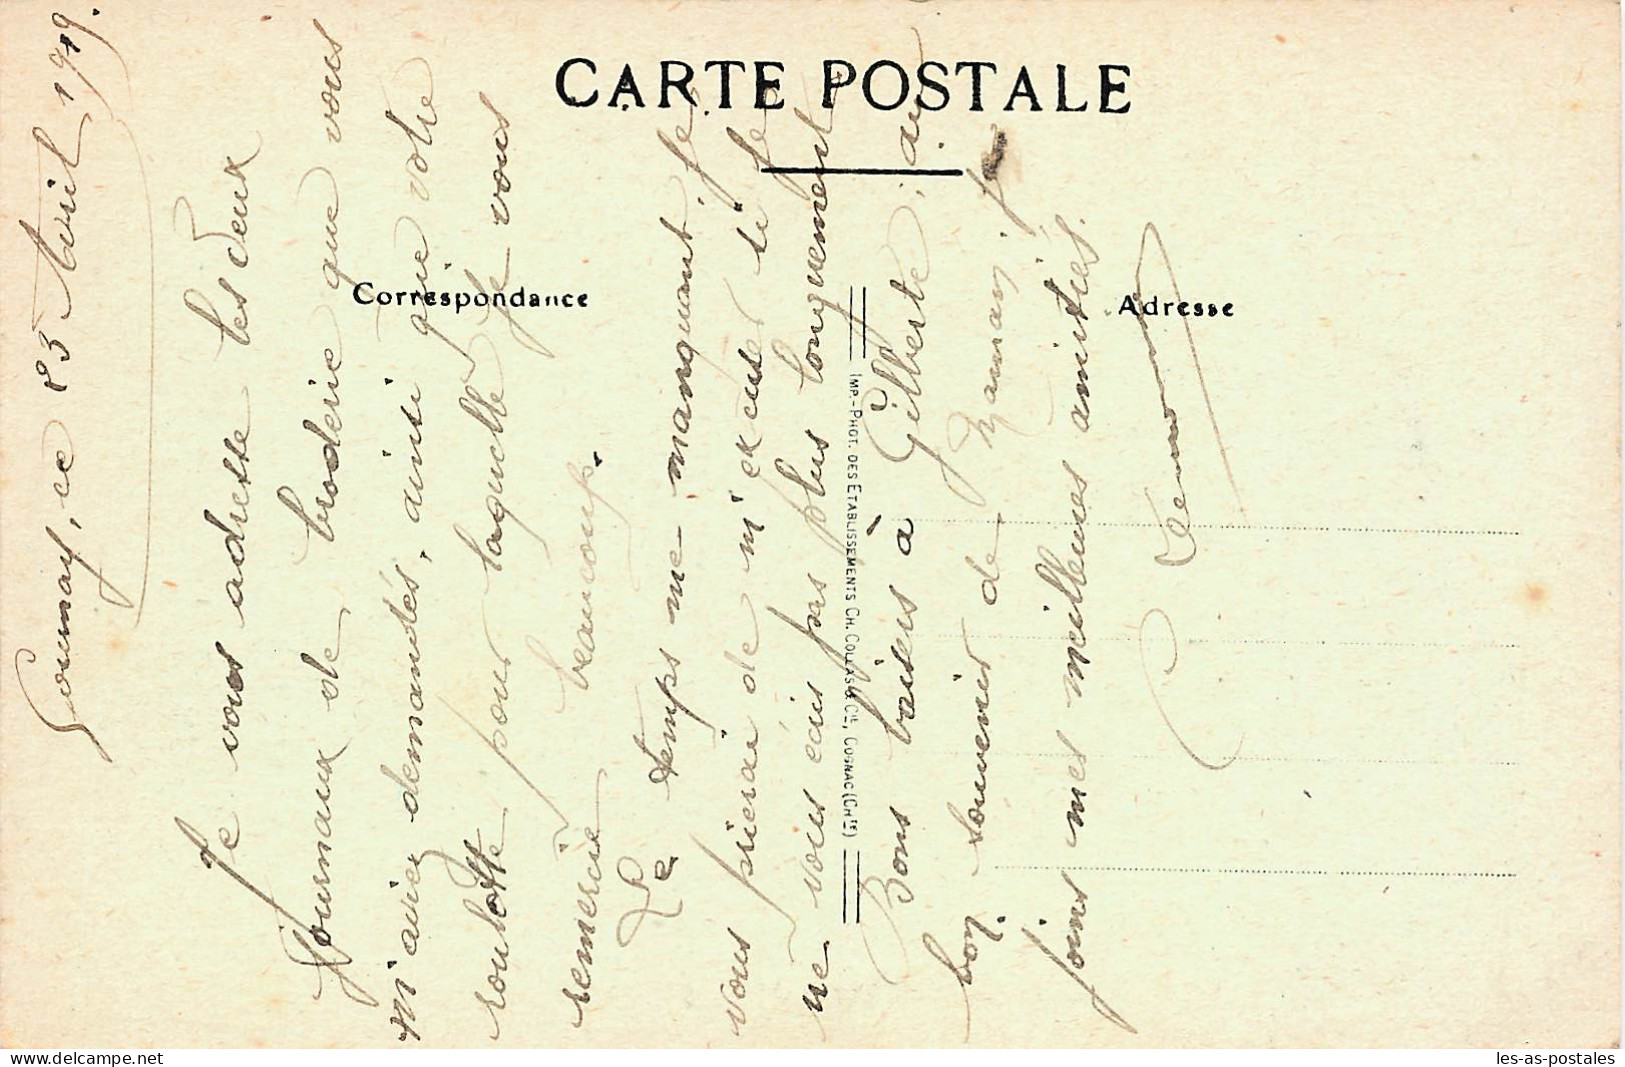 CARTE POSTALE
Correspondance
Adresse
IMP.-PHOT. DES ETABLISSEMENTS CH. COLLAS & Cie, COGNAC (Chte)
Gournay, ce 23 Avril 1919.
Je vous adresse les deux
journaux de broderie que vous
m'aviez demandés, ainsi que votre
roulotte pour laquelle je vous
remercie beaucoup.
Le temps me manquant, je
vous prierai de m'excuser si je
ne vous écris pas plus longuement
Bons baisers à Gilberte, au
bon souvenir de Maman, je
joins mes meilleures amitiés.
delcampe.net
les-as-postales